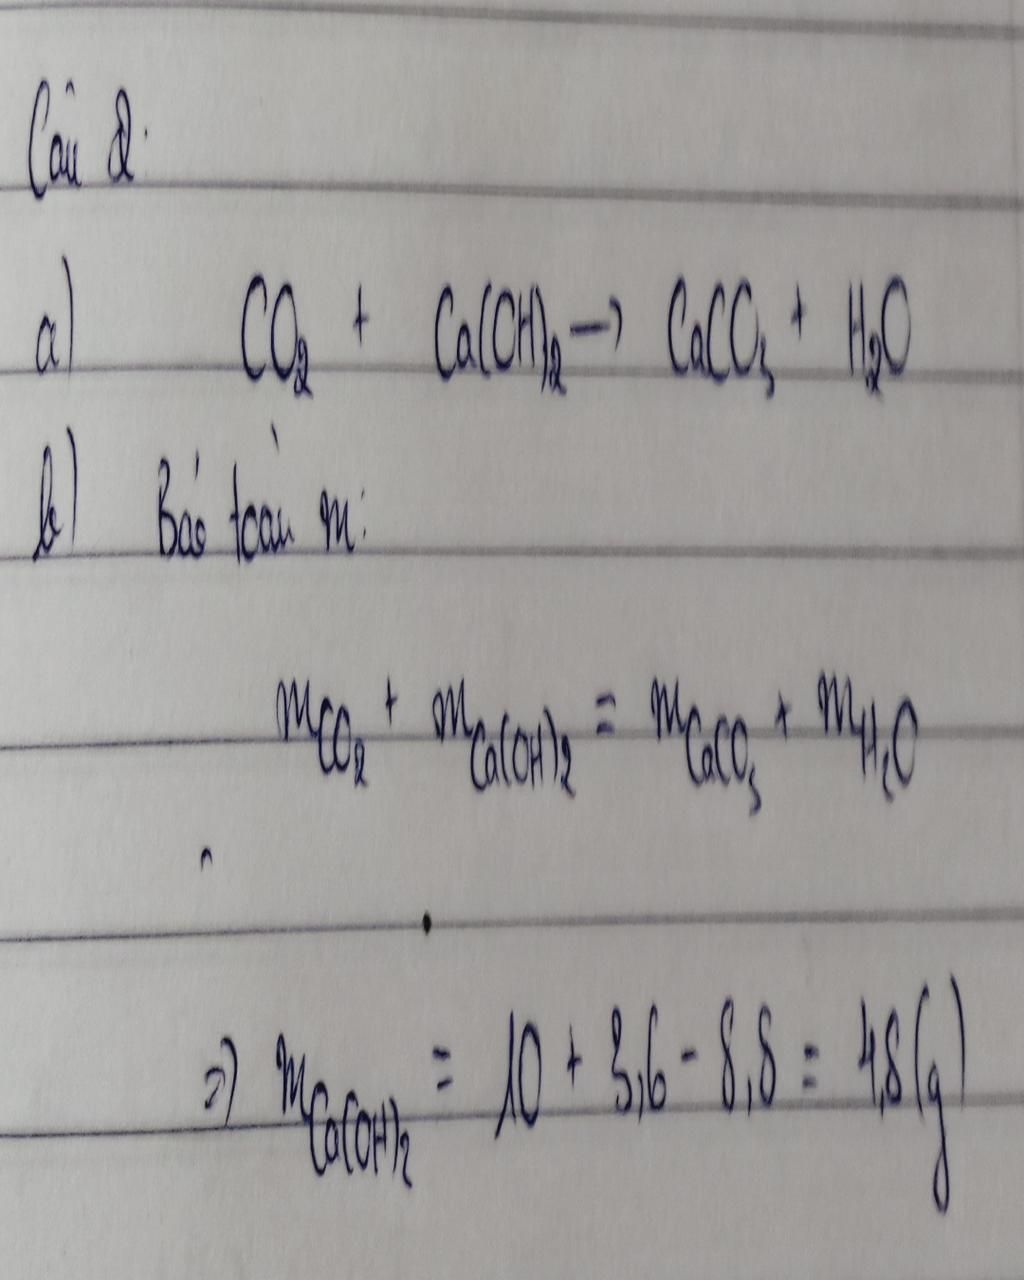 Câu 2:
a) CO₂ + Ca(OH)₂ → CaCO₃ + H₂O
b) Bảo toàn m:
m_CO₂ + m_Ca(OH)₂ = m_CaCO₃ + m_H₂O
=) m_Ca(OH)₂ = 10 + 3,6 - 8,8 = 4,8 (g)